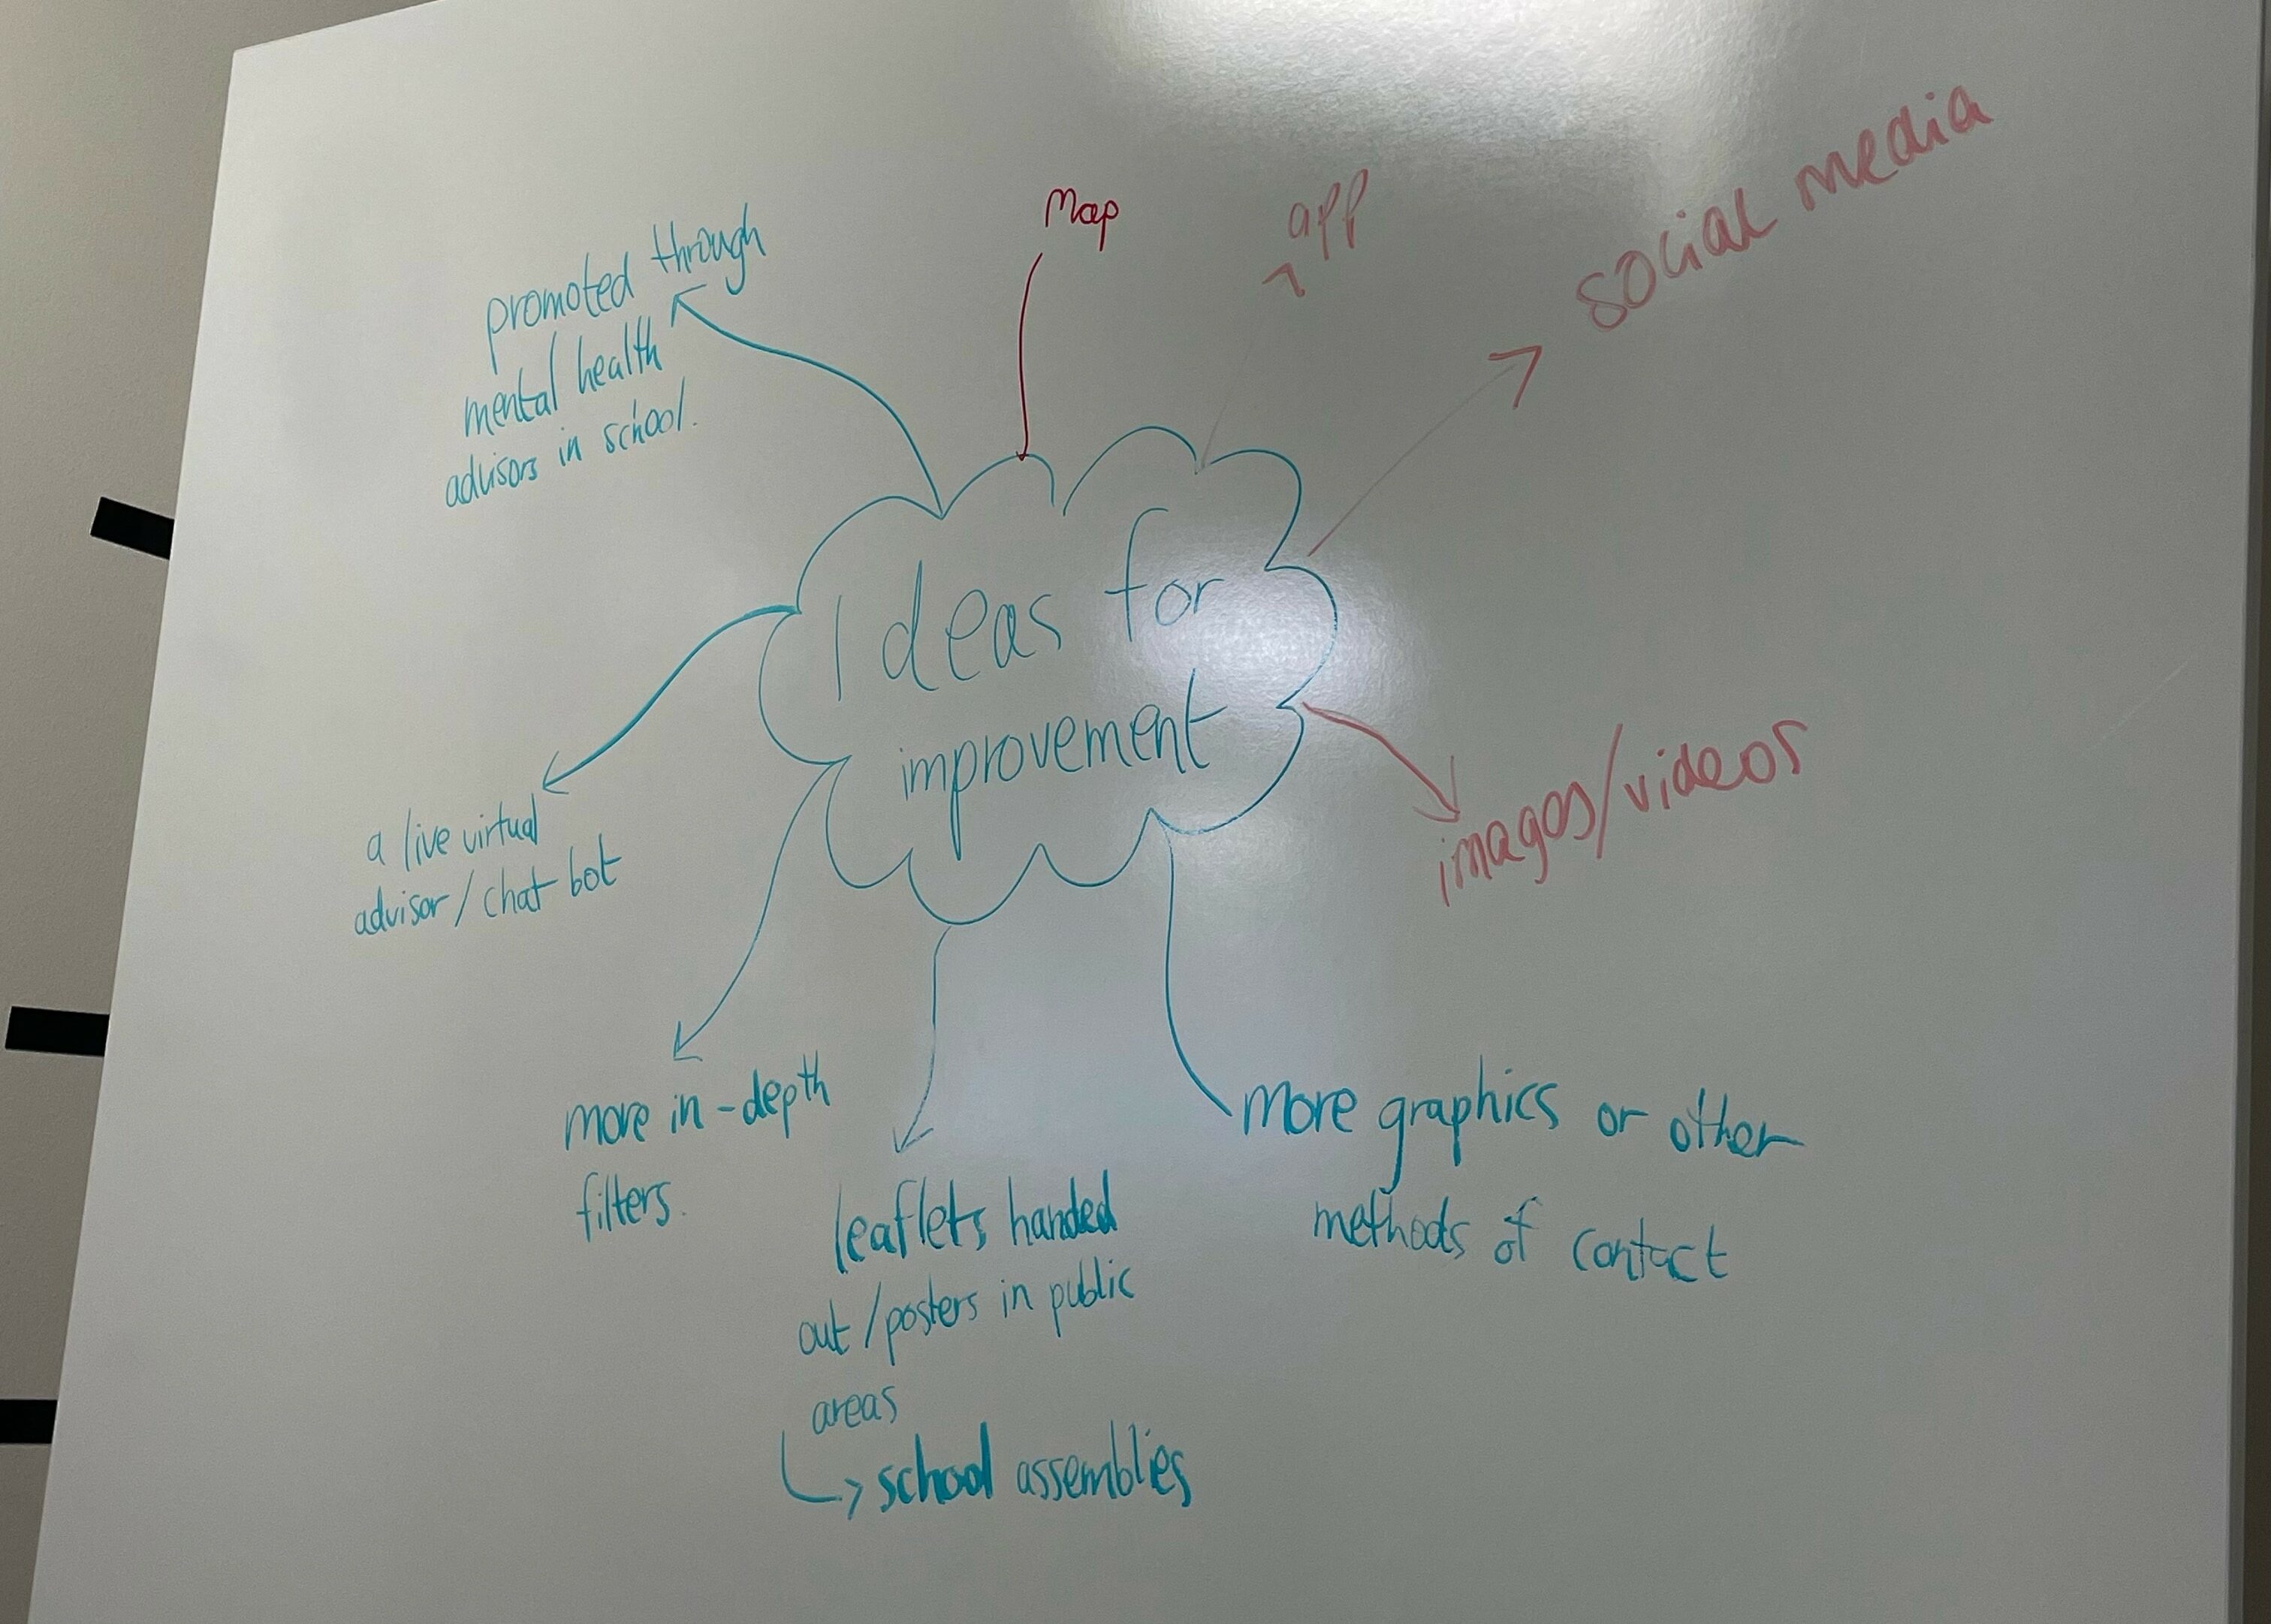 Map
app
social media
promoted through
mental health
advisors in school.
Ideas for
improvement
images/videos
a live virtual
advisor/chat bot
more in-depth
filters.
leaflets handed
out/posters in public
areas
school assemblies
more graphics or other
methods of contact